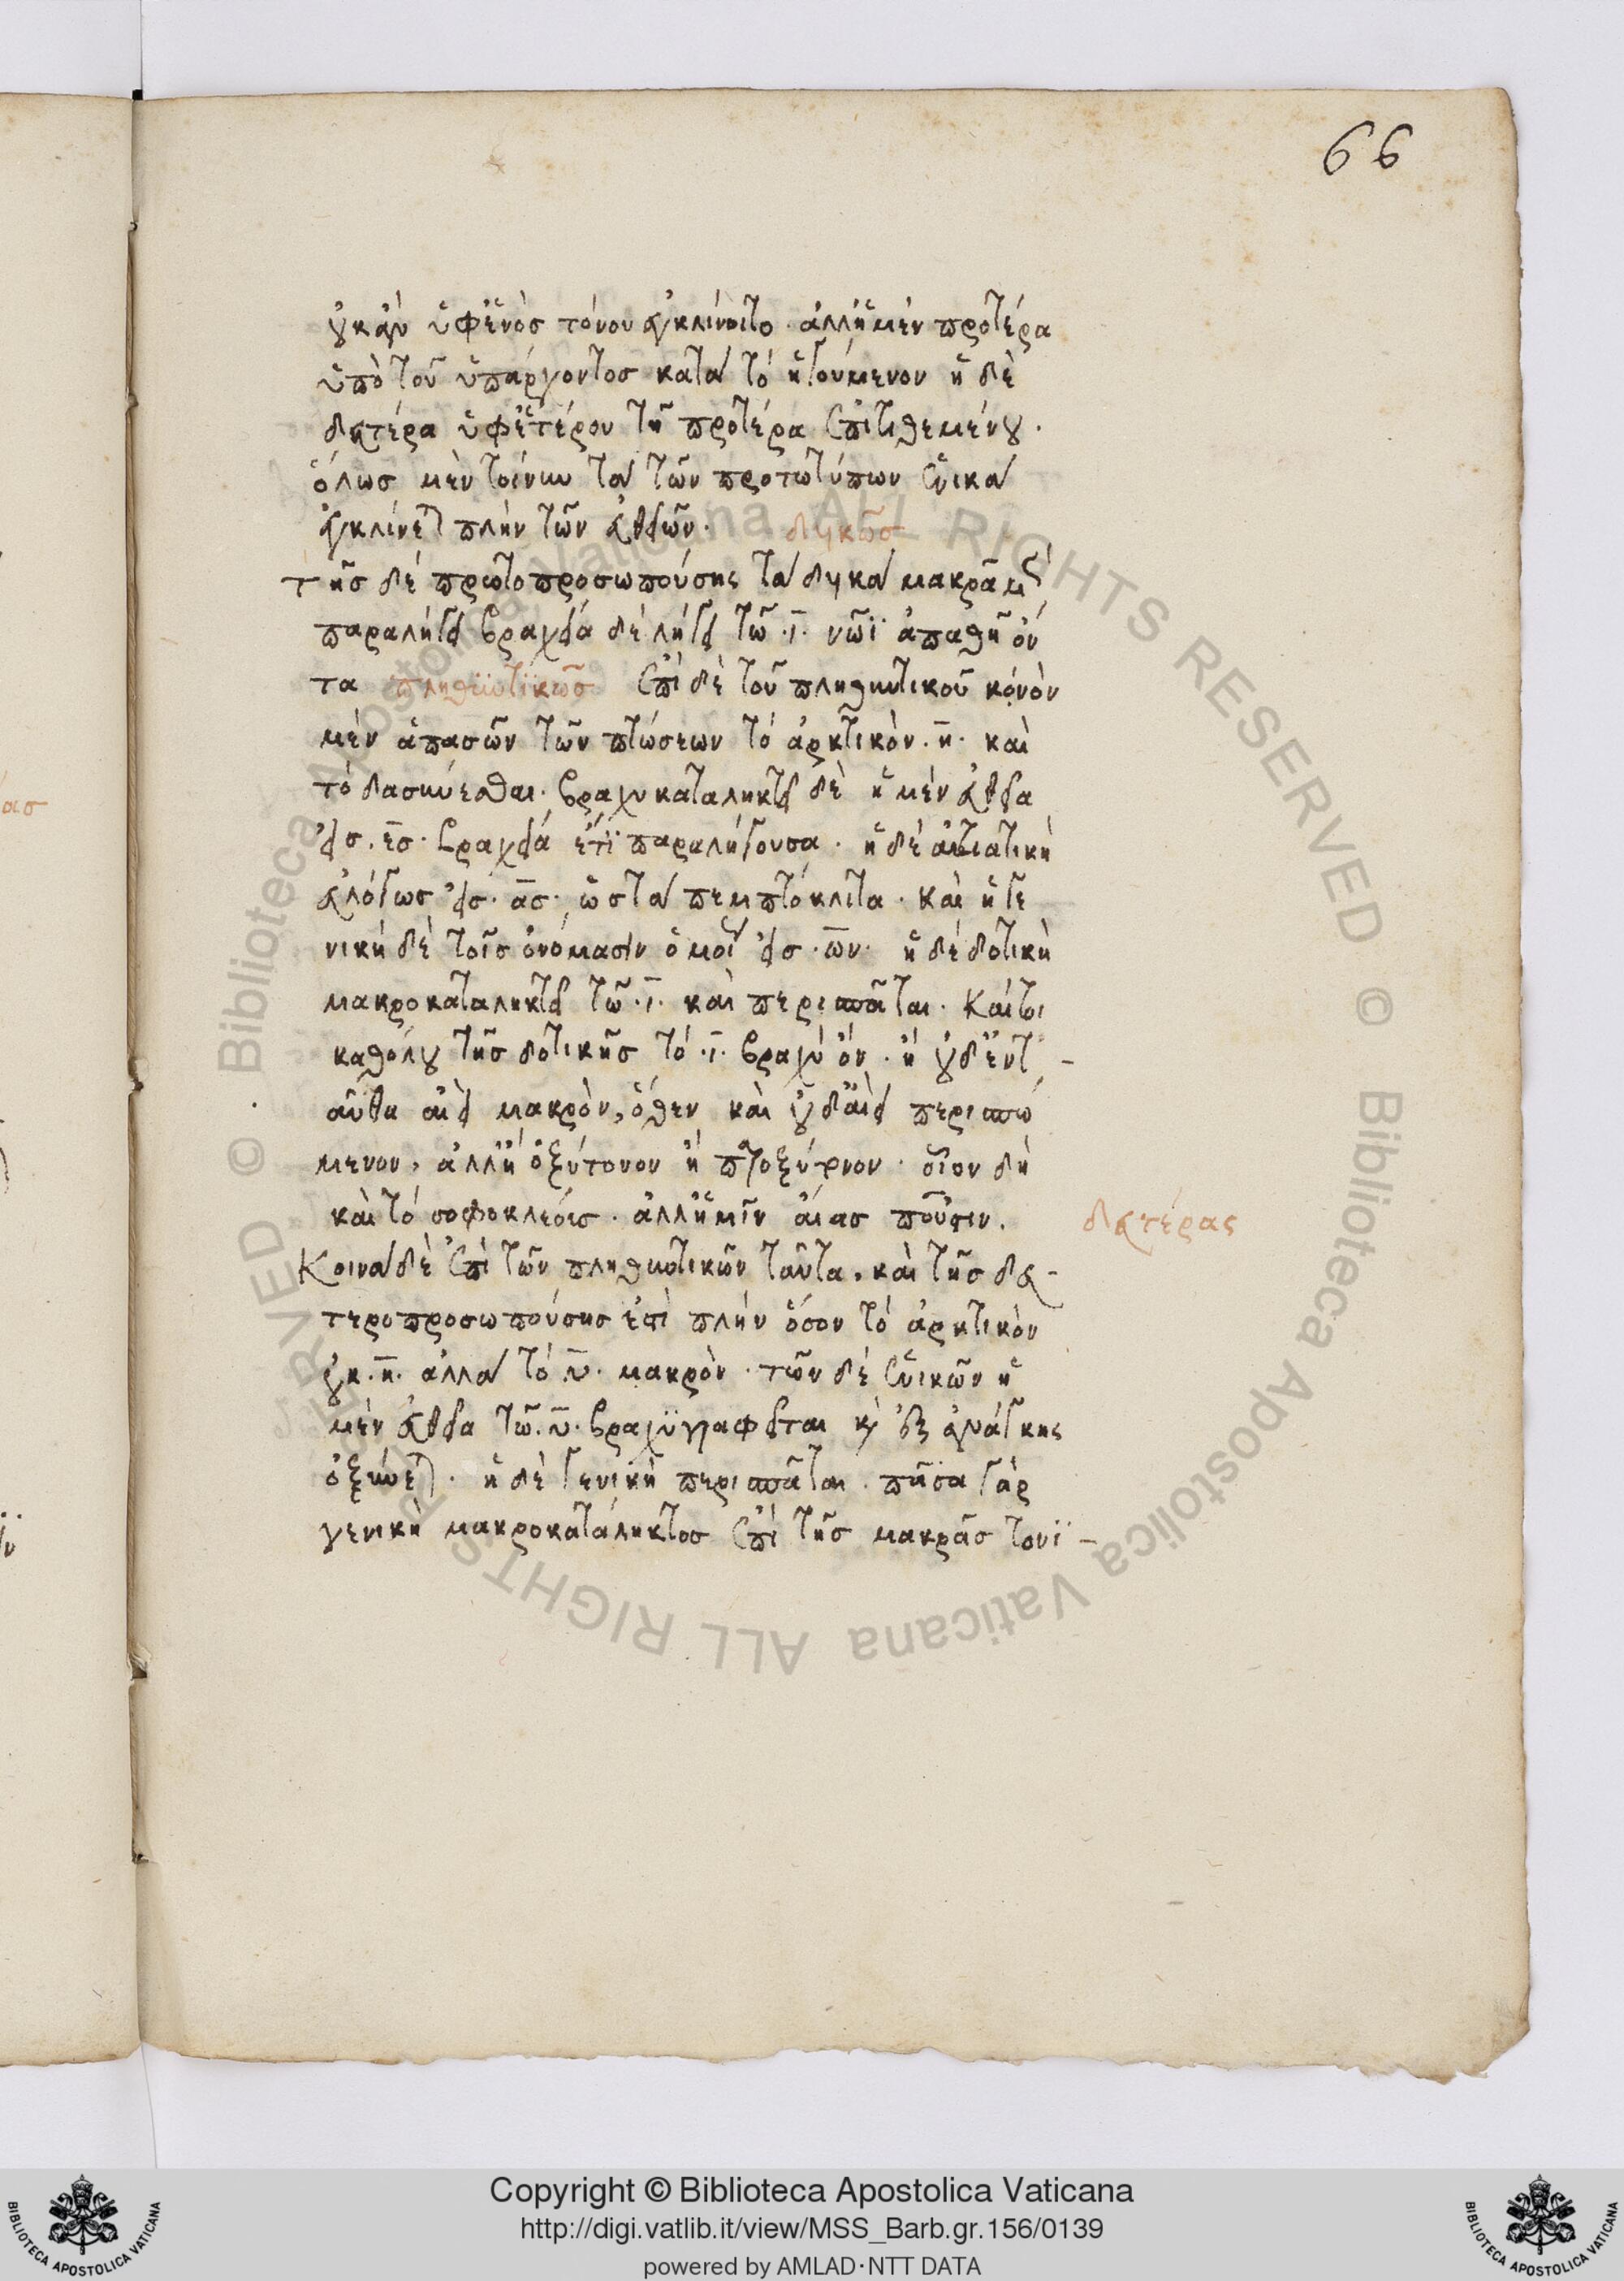 66
οὐκ ἂν ὑφ' ἑνὸς τόνου ἐγκλίνοιτο. ἀλλ' ἡ μὲν προτέρα
ὑπὸ τοῦ ὑπάρχοντος κατὰ τὸ ἡγούμενον ἡ δὲ
δευτέρα ὑφ' ἑτέρου τῆ προτέρα ἐπιτιθεμένου.
ὅλως μὲν τοίνυν τὰ τῶν προτωτύπων ἑνικὰ
ἐγκλίνεται πλὴν τῶν εὐθειῶν. δυικῶς
τῆς δὲ πρωτοπροσωπούσης τὰ δυικὰ μακρᾶ μὲν
παραλήγει βραχεία δὲ λήγει τῶ .ι. νῶϊ ἀπαθῆ ὄν
τα πληθυντικῶς ἐπὶ δὲ τοῦ πληθυντικοῦ κοινὸν
μὲν ἁπασῶν τῶν πτώσεων τὸ ἀρκτικὸν .η. καὶ
τὸ δασύνεσθαι. βραχυκαταληκτεῖ δὲ ἡ μὲν εὐθεῖα
εἰς .ες. βραχεία ἔτι παραλήγουσα. ἡ δὲ αἰτιατικὴ
εὐλόγως εἰς .ας. ὡς τὰ πεμπτόκλιτα. καὶ ἡ γε
νικὴ δὲ τοῖς ὀνόμασιν ὁμοίως εἰς .ων. ἡ δὲ δοτικὴ
μακροκαταληκτεῖ τῶ .ι. καὶ περισπᾶται. καίτοι
καθόλου τῆς δοτικῆς τὸ .ι. βραχὺ ὄν. ἢ οὐδ' ἐντ-
αῦθα αἰεὶ μακρὸν, ὅθεν καὶ οὐδ' αἰεὶ περισπώ
μενον, ἀλλ' ἢ ὀξύτονον ἢ παροξύτονον. οἷον δὴ
καὶ τὸ σοφοκλέοις. ἀλλ' ἡμῖν αἴας ποῦ 'στιν.
δευτέρας
Κοινὰ δὲ ἐπὶ τῶν πληθυντικῶν ταῦτα, καὶ τῆς δευ-
τεροπροσωπούσης ἐστὶ πλὴν ὅσον τὸ ἀρκτικὸν
οὐκ .η. ἀλλὰ τὸ .υ. μακρὸν. τῶν δὲ ἑνικῶν ἡ
μὲν εὐθεῖα τῶ .υ. βραχὺ γράφεται καὶ ἐξ ἀνάγκης
ὀξύνεται. ἡ δὲ γενικὴ περισπᾶται. πᾶσα γὰρ
γενικὴ μακροκατάληκτος ἐπὶ τῆς μακρᾶς τονϊ-
ας
© Biblioteca Apostolica Vaticana ALL RIGHTS RESERVED © Biblioteca Apostolica Vaticana ALL RIGHTS RESERVED
Copyright © Biblioteca Apostolica Vaticana
http://digi.vatlib.it/view/MSS_Barb.gr.156/0139
powered by AMLAD·NTT DATA
BIBLIOTECA APOSTOLICA VATICANA
BIBLIOTECA APOSTOLICA VATICANA